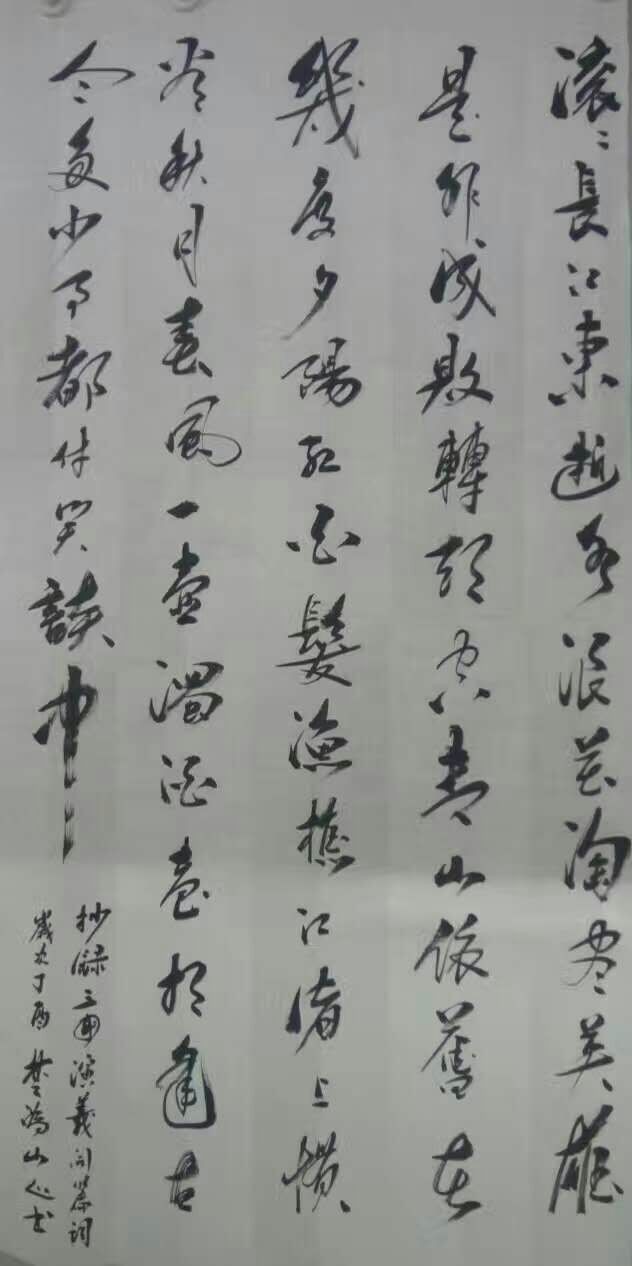 滚〻長江東逝水浪花淘尽英雄
是非成敗轉頭空青山依舊在
幾度夕陽紅白髮漁樵江渚上慣
看秋月春風一壺濁酒喜相逢古
今多少事都付笑談中
抄録三國演義開篇詞
歲次丁酉山書